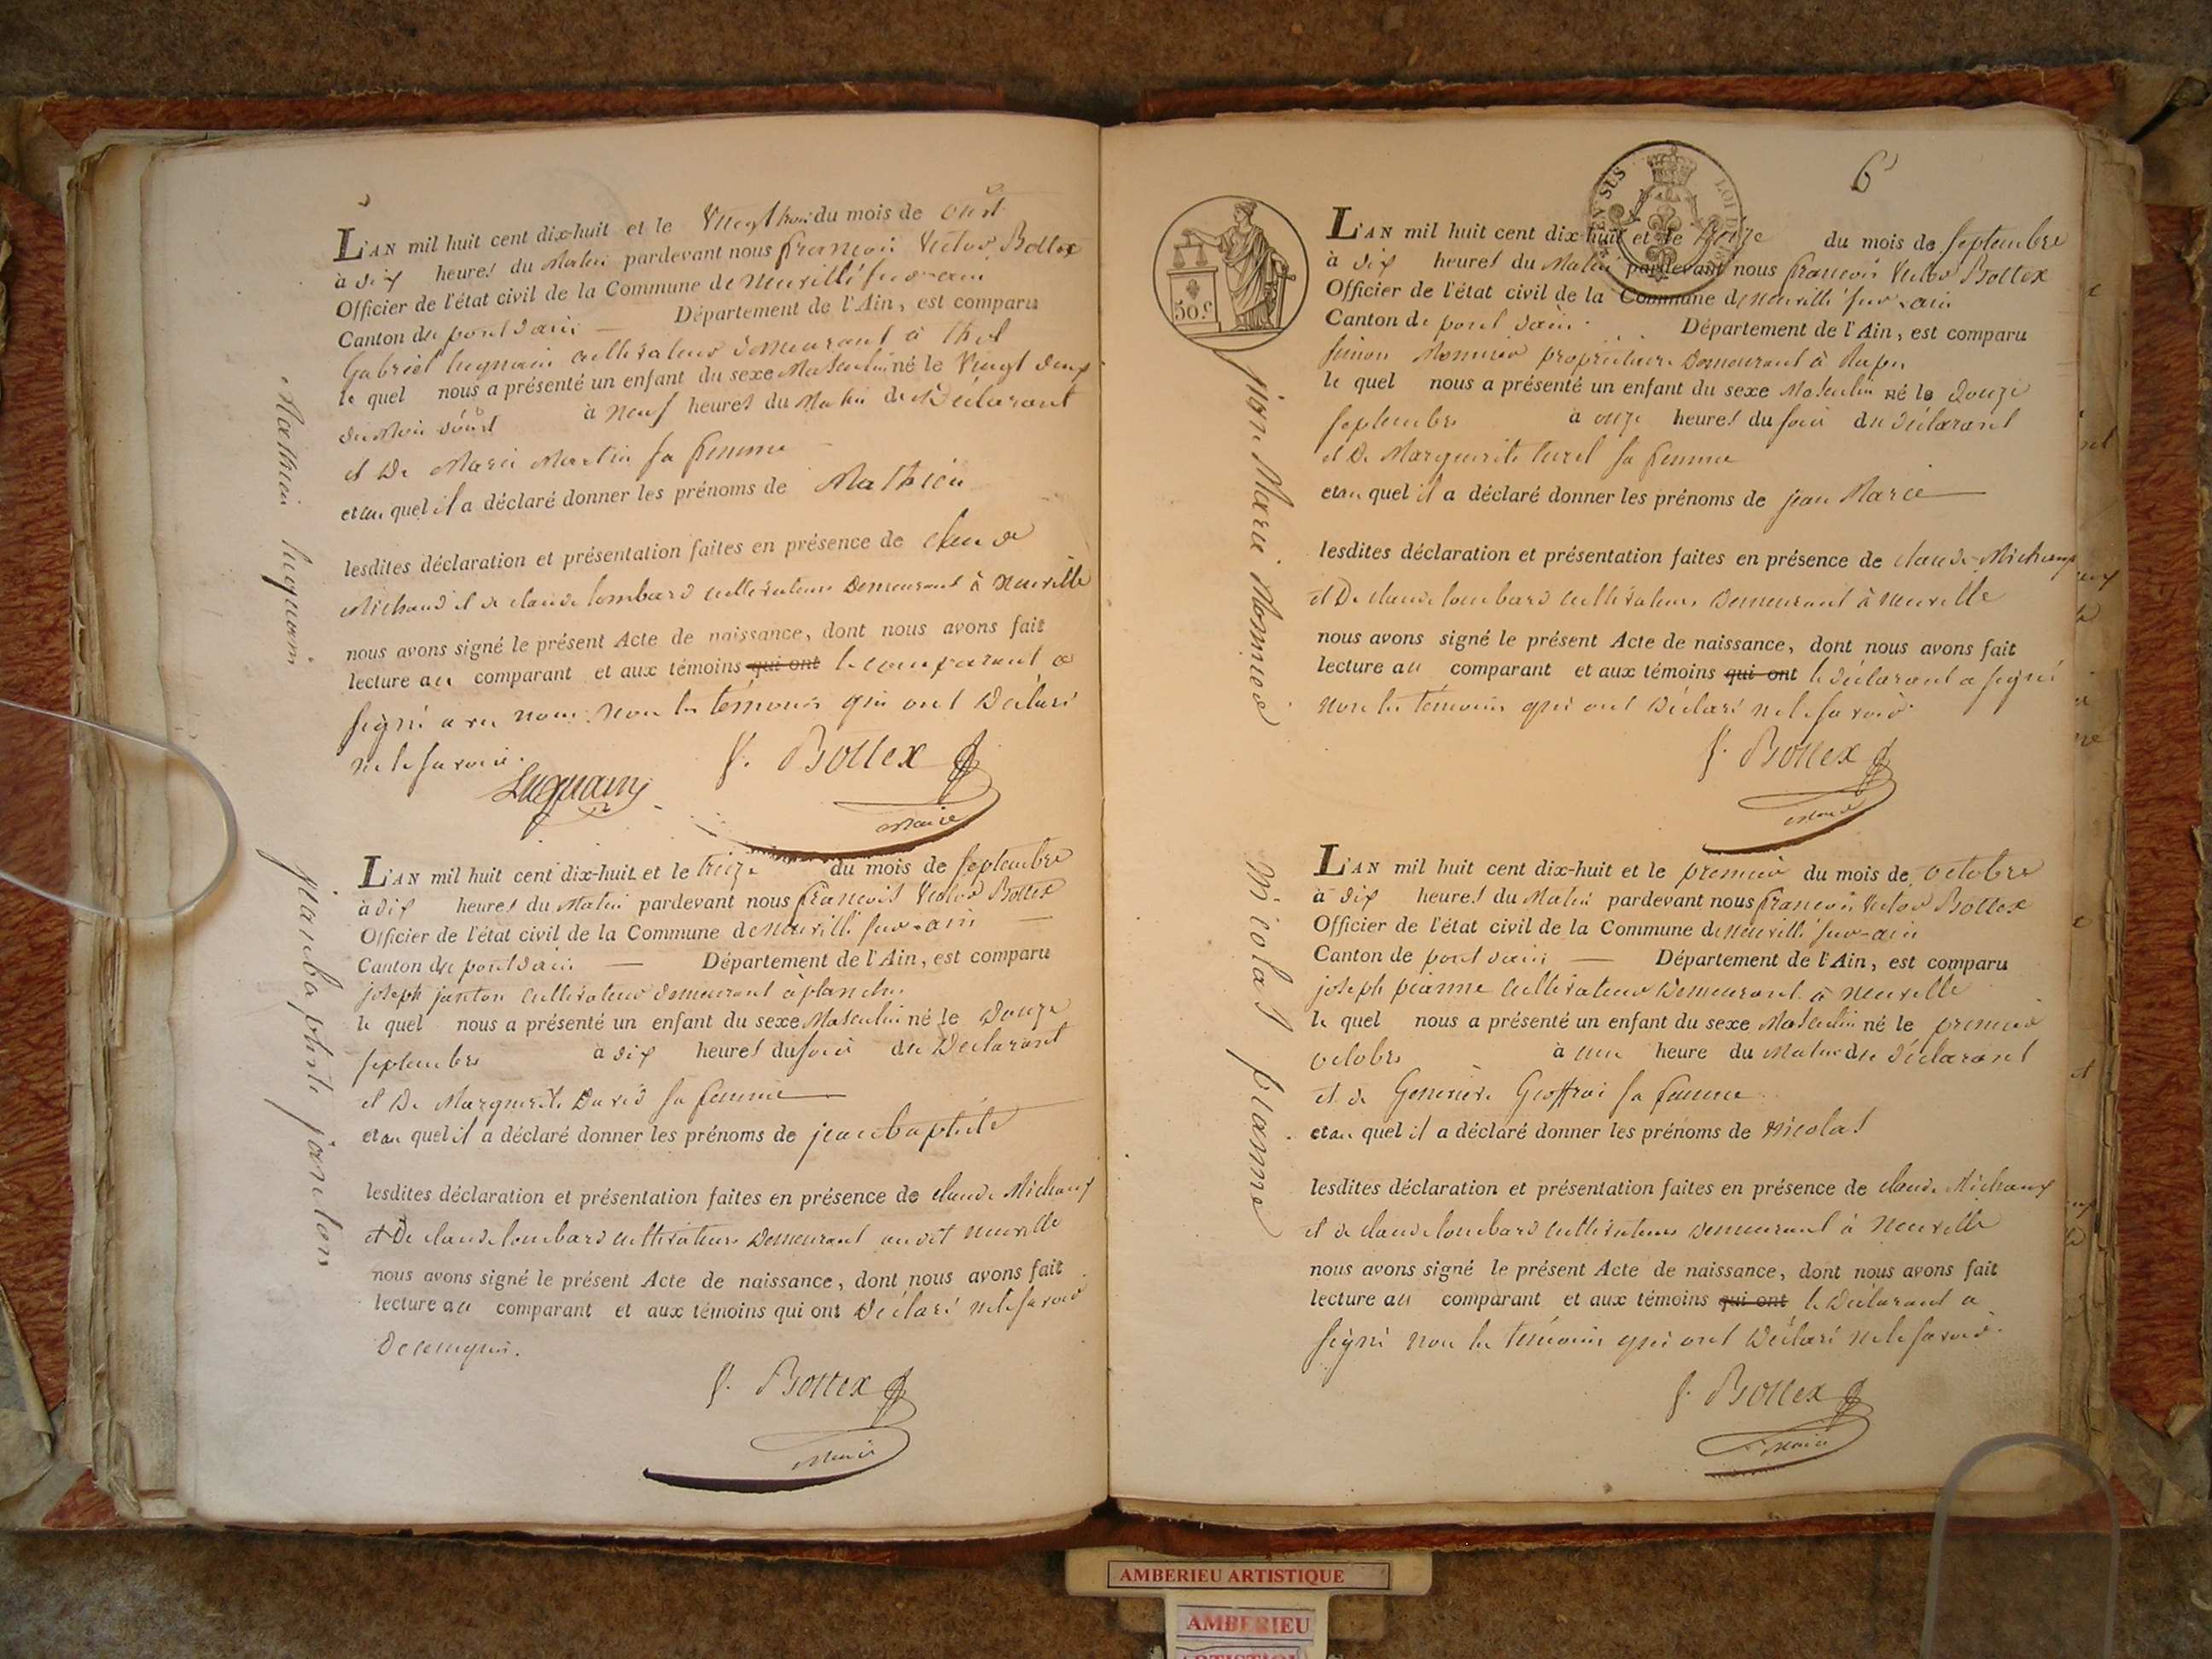 L'AN mil huit cent dix-huit et le Vingt trois du mois de août
à dix heures du Matin pardevant nous françois Victor Bottex
Officier de l'état civil de la Commune de Neuville sur-ain
Canton de pont d'ain — Département de l'Ain, est comparu
Gabriel Luquain cultivateur demeurant à thol
le quel nous a présenté un enfant du sexe Masculin né le Vingt deux
du Mois d'août à neuf heures du Matin du Déclarant
et De Marie Martin sa femme
et au quel il a déclaré donner les prénoms de Mathieu
lesdites déclaration et présentation faites en présence de claude
Michaud et de claude lombard cultivateurs Demeurant à neuville
nous avons signé le présent Acte de naissance, dont nous avons fait
lecture au comparant et aux témoins qui ont le comparant a
signé avec nous non les témoins qui ont Déclaré
ne le savoir.
Luquain
f. Bottex
Maire
Mathieu luquain
L'AN mil huit cent dix-huit et le treize du mois de septembre
à dix heures du Matin pardevant nous françois Victor Bottex
Officier de l'état civil de la Commune de Neuville sur-ain
Canton de pont d'ain — Département de l'Ain, est comparu
joseph janton cultivateur demeurant à planche
le quel nous a présenté un enfant du sexe Masculin né le Douze
septembre à dix heures du soir du Déclarant
et De Marguerite David sa femme
et au quel il a déclaré donner les prénoms de jean baptiste
lesdites déclaration et présentation faites en présence de claude Michaux
et De claude lombard cultivateurs Demeurant audit neuville
nous avons signé le présent Acte de naissance, dont nous avons fait
lecture au comparant et aux témoins qui ont Déclaré ne le savoir
De ce enquis.
f. Bottex
Maire
jean baptiste janton
6
50.c
L'AN mil huit cent dix-huit et le treize du mois de septembre
à dix heures du Matin pardevant nous françois Victor Bottex
Officier de l'état civil de la Commune de Neuville sur-ain
Canton de pont d'ain Département de l'Ain, est comparu
simon Monnier propriétaire Demeurant à
le quel nous a présenté un enfant du sexe Masculin né le douze
septembre à onze heures du soir du déclarant
et De Marguerite turel sa femme
et au quel il a déclaré donner les prénoms de jean Marie
lesdites déclaration et présentation faites en présence de claude Michaux
et De claude lombard cultivateurs Demeurant à neuville
nous avons signé le présent Acte de naissance, dont nous avons fait
lecture au comparant et aux témoins qui ont le déclarant a signé
non les témoins qui ont Déclaré ne le savoir
f. Bottex
Maire
jean Marie Monnier
L'AN mil huit cent dix-huit et le premier du mois de octobre
à dix heures du Matin pardevant nous françois Victor Bottex
Officier de l'état civil de la Commune de Neuville sur-ain
Canton de pont d'ain — Département de l'Ain, est comparu
joseph pianne cultivateur Demeurant à neuville
le quel nous a présenté un enfant du sexe Masculin né le premier
octobre à une heure du Matin du déclarant
et de Geneviève Geoffrai sa femme
et au quel il a déclaré donner les prénoms de Nicolas
lesdites déclaration et présentation faites en présence de claude Michaux
et de claude lombard cultivateurs Demeurant à neuville
nous avons signé le présent Acte de naissance, dont nous avons fait
lecture au comparant et aux témoins qui ont le Déclarant a
signé non les témoins qui ont Déclaré ne le savoir.
f. Bottex
Maire
Nicolas pianne
AMBERIEU ARTISTIQUE
AMBERIEU
ARTISTIQUE